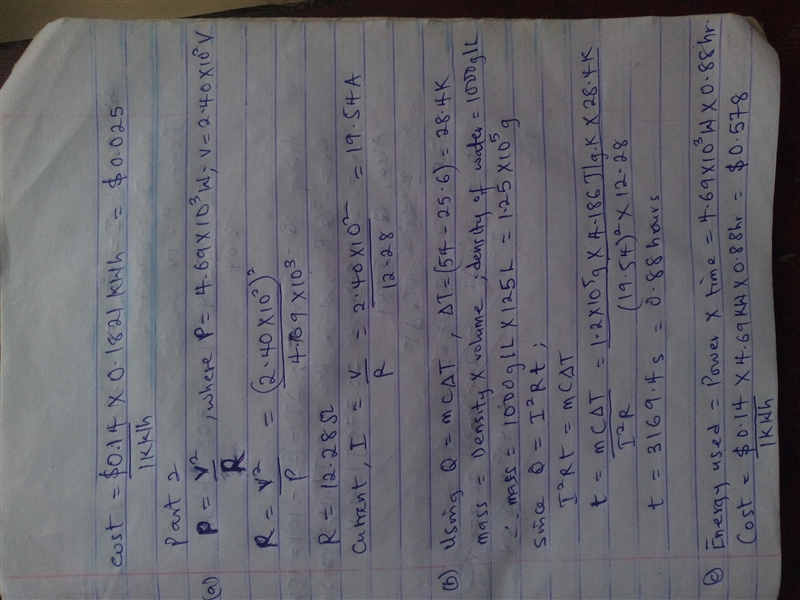 cost = $0.14 X 0.1821 kWh = $0.025
1kWh
Part 2
(a) P = V² , where P = 4.69X10³W, V = 2.40X10²V
R
R = V² = (2.40X10²)²
P 4.69X10³
R = 12.28Ω
Current, I = V = 2.40X10² = 19.54A
R 12.28
(b) Using Q = mCΔT , ΔT = (54 - 25.6) = 28.4K
mass = Density X volume ; density of water = 1000g/L
∴ mass = 1000g/L X 125L = 1.25X10⁵g
Since Q = I²Rt ;
I²Rt = mCΔT
t = mCΔT = 1.2X10⁵g X 4.186J/g.K X 28.4K
I²R (19.54)² X 12.28
t = 3169.4s = 0.88hours
(c) Energy used = Power X time = 4.69X10³W X 0.88hr
Cost = $0.14 X 4.69KW X 0.88hr = $0.578
1KWh